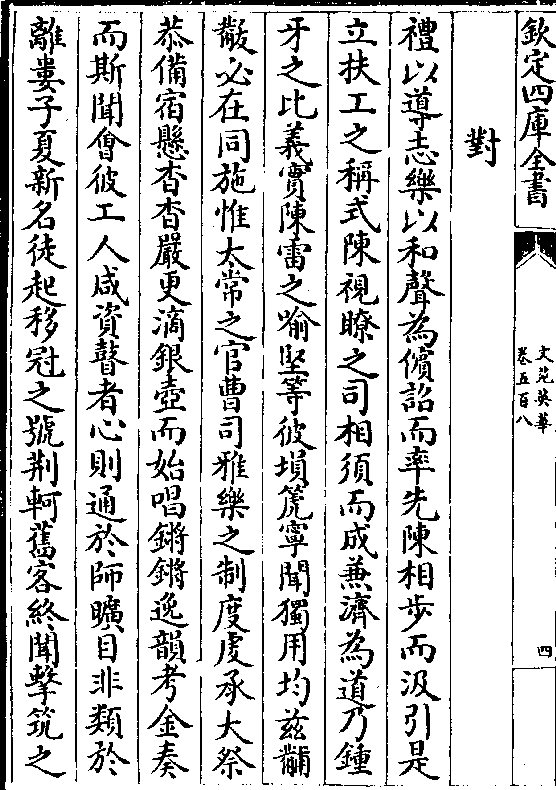 欽定四庫全書
文苑英華
卷五百八
四
對
禮以導志樂以和聲為儐詔而率先陳相步而汲引是
立扶工之稱式陳視瞭之司相須而成兼濟為道乃鍾
牙之比義實陳雷之喻堅等彼塤箎寧聞獨用均兹黼
黻必在同施惟太常之官曹司雅樂之制度虔承大祭
恭備宿懸杳杳嚴更滴銀壺而始唱鏘鏘逸韻考金奏
而斯聞會彼工人咸資瞽者心則通於師曠目非類於
離婁子夏新名徒起移冠之號荆軻舊客終聞擊筑之